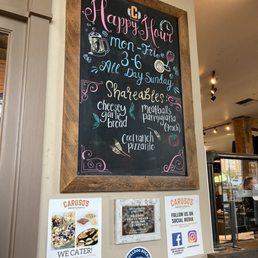 Happy Hour
mon-Fri
3-6
All Day Sunday
Shareables:
cheesey
garlic
bread
meatballs
parmigiana
cool ranch
pizzarite
CARUSO'S
WE CATER!
CARUSO'S
FOLLOW US ON
SOCIAL MEDIA